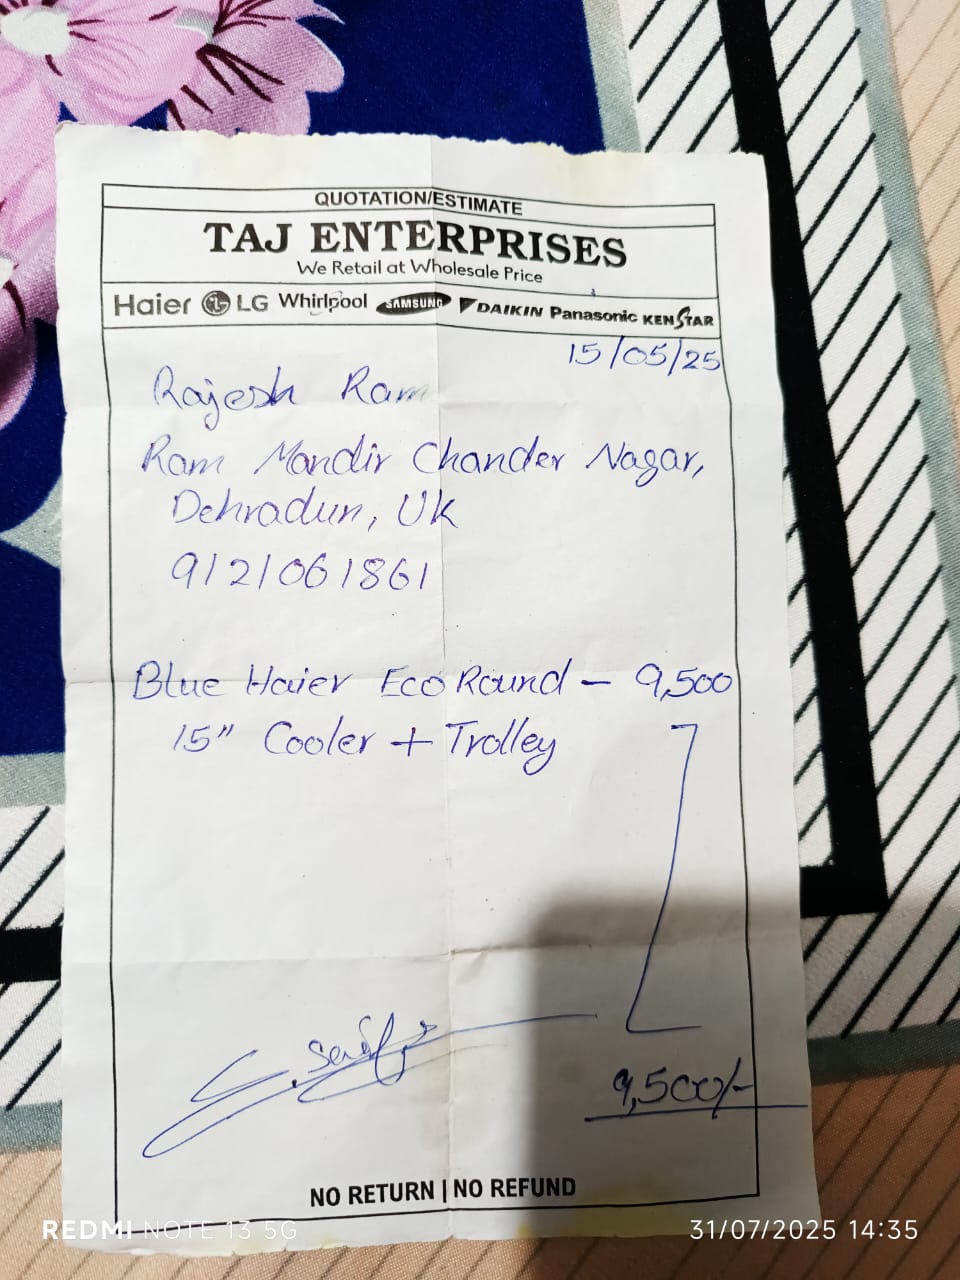 QUOTATION/ESTIMATE
TAJ ENTERPRISES
We Retail at Wholesale Price
Haier LG Whirlpool SAMSUNG DAIKIN Panasonic KENSTAR
15/05/25
Rajesh Ram
Ram Mandir Chander Nagar,
Dehradun, UK
9121061861
Blue Haier Eco Round — 9,500
15" Cooler + Trolley
9,500/-
NO RETURN | NO REFUND
REDMI NOTE 13 5G
31/07/2025 14:35